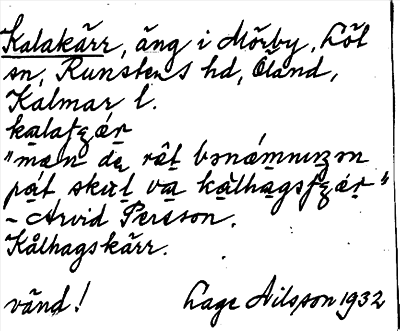 Kalakärr, äng i Mörby, Löt
sn, Runstens hd, Öland,
Kalmar l.
kalaʃɛ́r
"mæn dɛ rät bɔnǽmnuŋɔn
pát skul va kålhagsʃɛ́r"
- Arvid Persson.
Kålhagskärr.
vänd! Lage Nilsson 1932